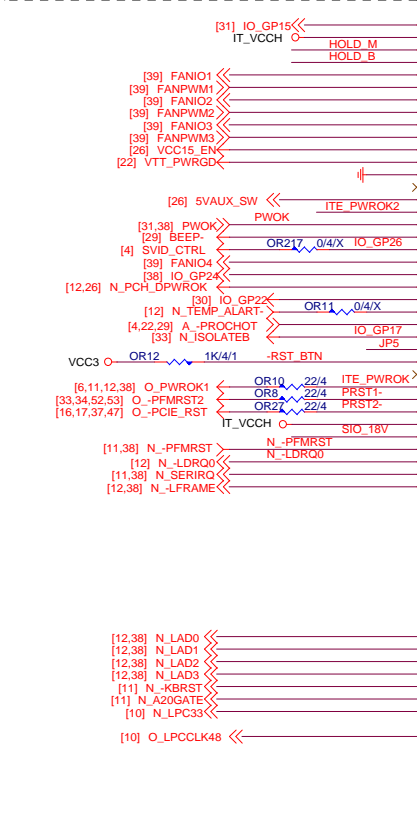 [31] IO_GP15
IT_VCCH
HOLD_M
HOLD_B
[39] FANIO1
[39] FANPWM1
[39] FANIO2
[39] FANPWM2
[39] FANIO3
[39] FANPWM3
[26] VCC15_EN
[22] VTT_PWRGD
[26] 5VAUX_SW
ITE_PWROK2
[31,38] PWOK PWOK
[29] BEEP-
[4] SVID_CTRL OR217 0/4/X IO_GP26
[39] FANIO4
[38] IO_GP24
[12,26] N_PCH_DPWROK
[30] IO_GP22
[12] N_TEMP_ALART- OR11 0/4/X
[4,22,29] A_-PROCHOT
[33] N_ISOLATEB IO_GP17
JP5
VCC3 OR12 1K/4/1 -RST_BTN
[6,11,12,38] O_PWROK1 OR10 22/4 ITE_PWROK
[33,34,52,53] O_-PFMRST2 OR8 22/4 PRST1-
[16,17,37,47] O_-PCIE_RST OR27 22/4 PRST2-
IT_VCCH
SIO_18V
[11,38] N_-PFMRST N_-PFMRST
[12] N_-LDRQ0 N_-LDRQ0
[11,38] N_SERIRQ
[12,38] N_-LFRAME
[12,38] N_LAD0
[12,38] N_LAD1
[12,38] N_LAD2
[12,38] N_LAD3
[11] N_-KBRST
[11] N_A20GATE
[10] N_LPC33
[10] O_LPCCLK48